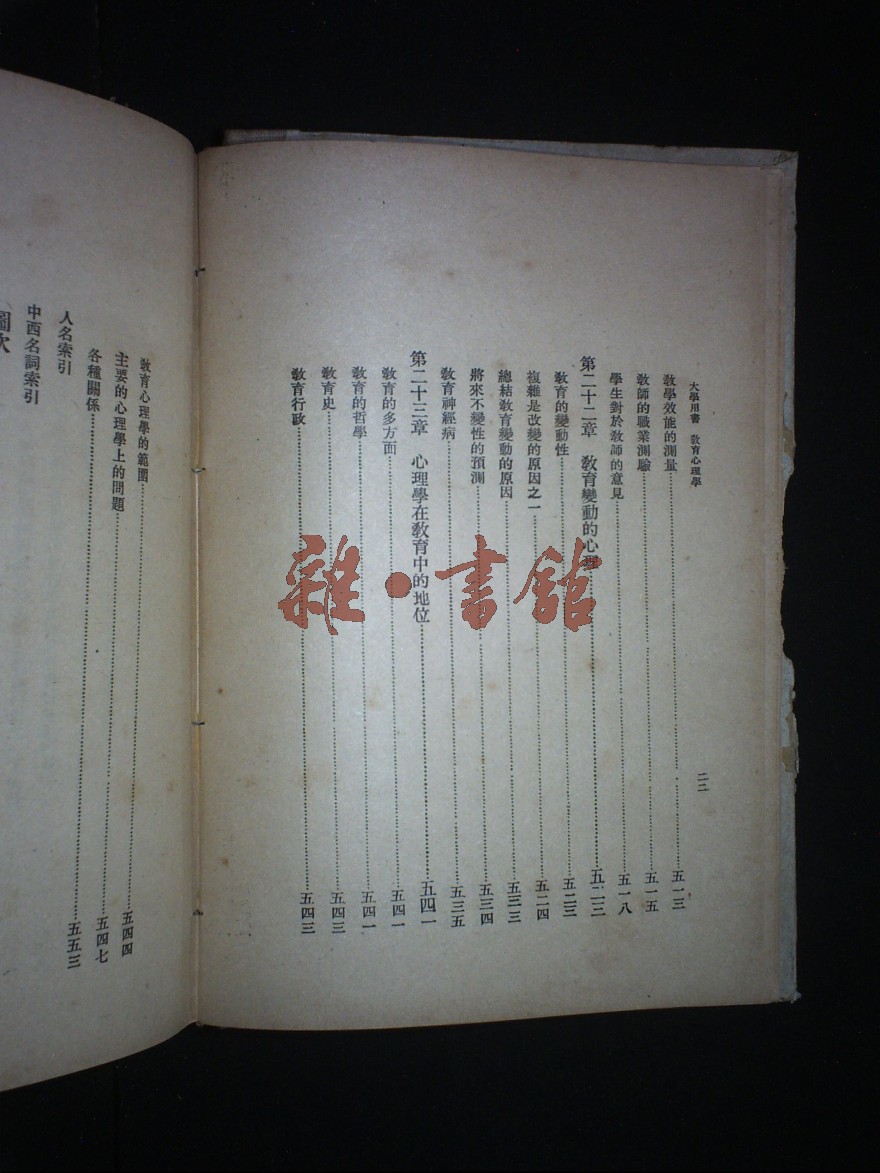 大學用書　敎育心理學
二二
敎學效能的測量……五一三
敎師的職業測驗……五一五
學生對於敎師的意見……五一八
第二十二章　敎育變動的心理……五二三
敎育的變動性……五二三
複雜是改變的原因之一……五二四
總結敎育變動的原因……五三三
將來不變性的預測……五三四
敎育神經病……五三五
第二十三章　心理學在敎育中的地位……五四一
敎育的多方面……五四一
敎育的哲學……五四一
敎育史……五四三
敎育行政……五四三
敎育心理學的範圍……五四四
主要的心理學上的問題……五四七
各種關係……五五三
人名索引
中西名詞索引
圖次
雜·書館